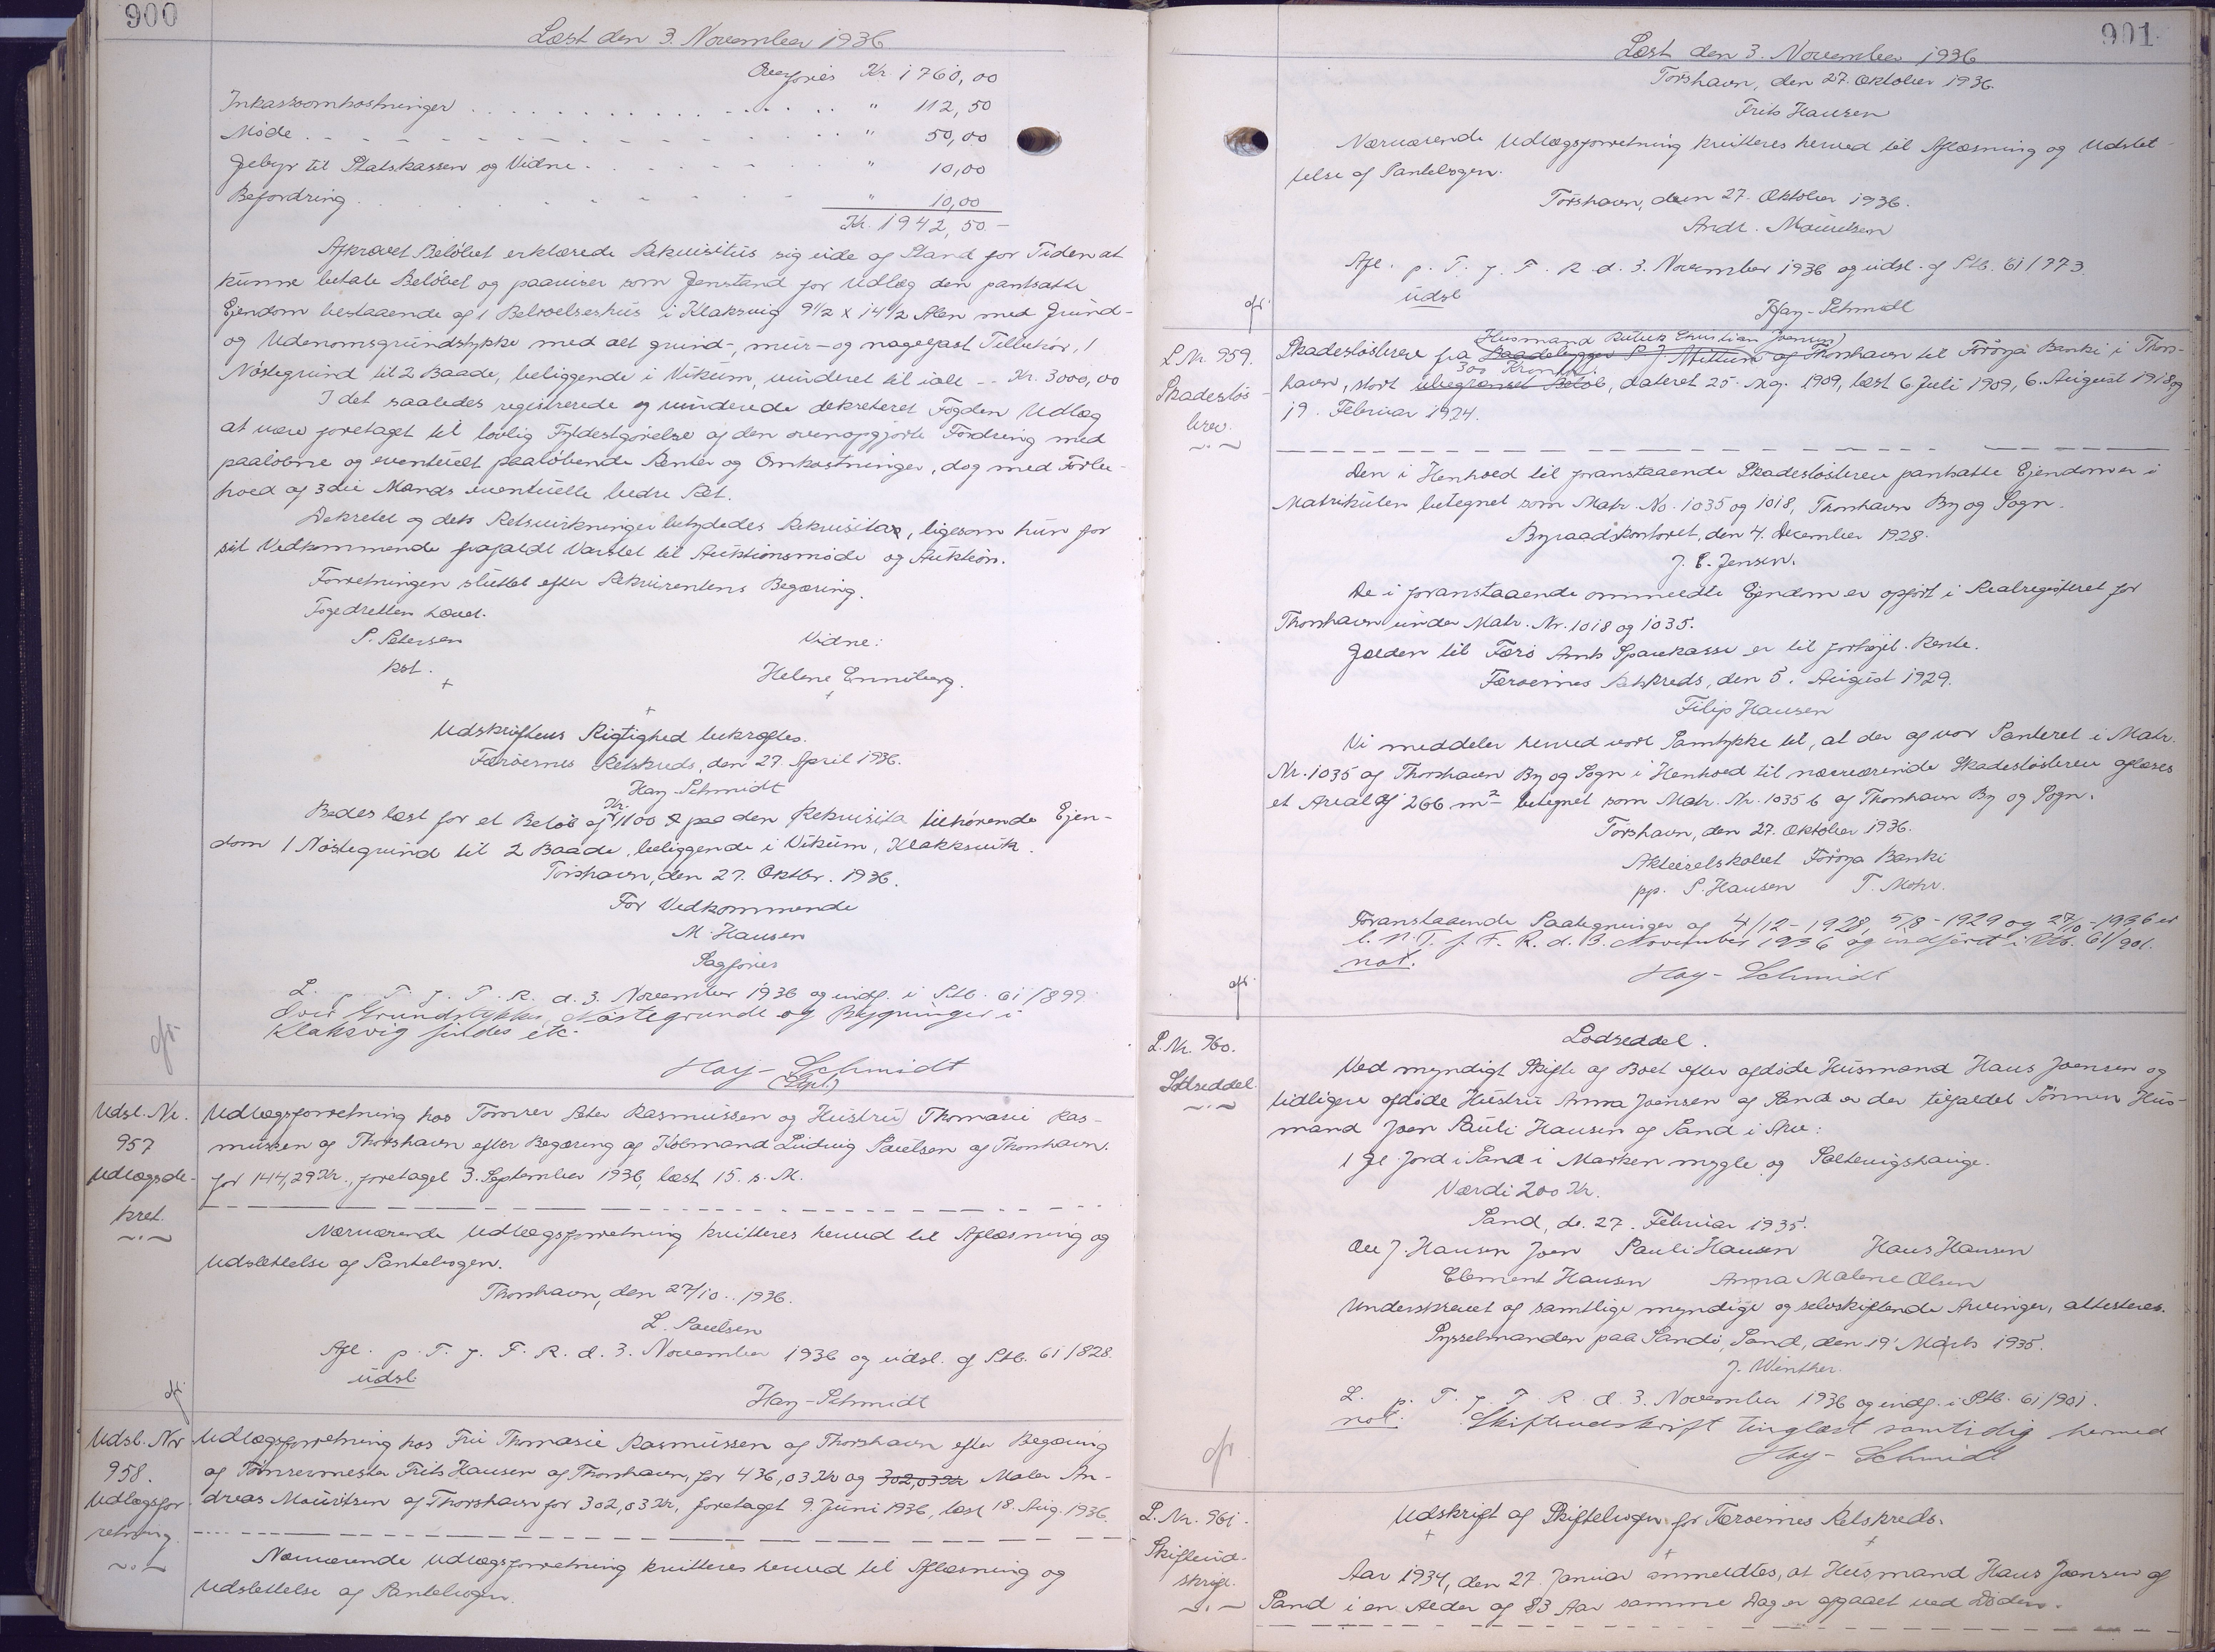 900
Læst den 3. November 1936
Overføres Kr. 1760,00
Inkassoomkostninger . . . . . . . . . . . . . " 112,50
Møde . . . . . . . . . . . . . " 50,00
Gebyr til Statskassen og Vidne . . . . . . . " 10,00
Befordring . . . . . . . . . " 10,00
Kr. 1942,50.-
Afkrævet Beløbet erklærede Rekvisitus sig ude af Stand for Tiden at
kunne betale Beløbet og paaviser som Genstand for Udlæg den pantsatte
Ejendom bestaaende af 1 Beboelseshus i Klaksvig 9½ x 14½ Alen med Grund-
og Udenomsgrundstykke med alt grund-, mur- og nagelfast Tilbehør, 1
Nøstegrund til 2 Baade, beliggende i Vikum, vurderet til ialt -- Kr. 3000,00
I det saaledes registrerede og vurderede dekreteret Fogden Udlæg
at være foretaget til lovlig Fyldestgørelse af den ovenopgjorte Fordring med
paaløbne og eventuelt paaløbende Renter og Omkostninger, dog med Forbe-
hold af 3die Mands eventuelle bedre Ret.
Dekretet og dets Retsvirkninger betydedes Rekvisita, ligesom hun for
sit Vedkommende frafaldt Varslet til Auktionsmøde og Auktion.
Forretningen sluttet efter Rekvirentens Begæring.
Fogedretten hævet.
P. Petersen Vidne:
kst. Helene Enniberg.
Udskriftens Rigtighed bekræftes.
Færøernes Retskreds, den 27. April 1936.
Hay-Schmidt
Bedes læst for et Beløb af Kr. 1100 paa den Rekvisita tilhørende Ejen-
dom 1 Nøstegrund til 2 Baade, beliggende i Vikum, Klakksvik.
Tórshavn, den 27. Oktbr. 1936.
For Vedkommende
M. Hansen
Sagfører
L. p. T. f. F. R. d. 3. November 1936 og indf. i Ptb. 61/899.
Over Grundstykke, Nøstegrunde og Bygninger i
Klaksvig findes etc.
Hay-Schmidt
Udsl. Nr.
957
Udlægsde-
kret.
Udlægsforretning hos Tømrer Peter Rasmussen og Hustru Thomasie Ras-
mussen af Thorshavn efter Begæring af Købmand Ludvig Poulsen af Thorshavn.
for 144,29 Kr., foretaget 3. September 1936, læst 15. s. M.
Nærværende Udlægsforretning kvitteres herved til Aflæsning og
Udslettelse af Pantebogen.
Thorshavn, den 27/10.. 1936.
L. Poulsen
Afl. p. T. f. F. R. d. 3. November 1936 og udsl. af Ptb. 61/828.
udsl
Hay-Schmidt
Udsl. Nr
958.
Udlægsfor-
retning.
Udlægsforretning hos Fru Thomasie Rasmussen af Thorshavn efter Begæring
af Tømrermester Frits Hansen af Thorshavn, for 436,03 Kr og 302,03 Kr Maler An-
dreas Mouritsen af Thorshavn for 302,03 Kr, foretaget 9. Juni 1936, læst 18. Aug. 1936.
Nærværende Udlægsforretning kvitteres herved til Aflæsning og
Udslettelse af Pantebogen.
901
Læst den 3. November 1936
Tórshavn, den 27. Oktober 1936.
Frits Hansen
Nærværende Udlægsforretning kvitteres herved til Aflæsning og Udslet-
telse af Pantebogen.
Tórshavn, den 27. Oktober 1936.
Andr. Mouritsen
Afl. p. T. f. F. R. d. 3. November 1936 og udsl. af Ptb. 61/773.
udsl
Hay-Schmidt
L. Nr. 959.
Skadesløs-
brev.
Husmand Christian Joensen
Skadesløsbrev fra Baadebygger af Thorshavn til Föroya Banki i Thors-
300 Kroner
havn, stort ubegrænset Beløb, dateret 25. Aug. 1909, læst 6. Juli 1909, 6. August 1918 og
19. Februar 1924.
Den i Henhold til foranstaaende Skadesløsbrev pantsatte Ejendom er i
Matrikulen betegnet som Matr. No. 1035 og 1018, Thorshavn By og Sogn.
Byraadskontoret, den 4. December 1928.
J. E. Jensen.
De i foranstaaende ommeldte Ejendom er opført i Realregisteret for
Thorshavn under Matr. Nr. 1018 og 1035.
Gælden til Færø Amts Sparekasse er til forhøjet Rente.
Færøernes Retskreds, den 5. August 1929.
Filip Hansen
Vi meddeler herved vort Samtykke til, at der af vor Panteret i Matr.
Nr. 1035 af Thorshavn By og Sogn i Henhold til nærværende Skadesløsbrev afløses
et Areal af 266 m² betegnet som Matr. Nr. 1035 b af Thorshavn By og Sogn.
Tórshavn, den 27. Oktober 1936.
Aktieselskabet Föroya Banki
pp. S. Hansen T. Mohr.
Foranstaaende Paategninger af 4/12-1928, 5/8-1929 og 27/10-1936 er
l. p. T. f. F. R. d. 3. November 1936 og indført i Ptb. 61/901.
not.
Hay-Schmidt
L. Nr. 960.
Lodseddel
Lodseddel.
Ved myndigt Skifte af Boet efter afdøde Husmand Hans Joensen og
tidligere afdøde Hustru Anna Joensen af Sand er der tilfaldet Sønnen Hus-
mand Joen Pauli Hansen af Sand i Arv:
1 Gl. Jord i Sand i Marken mygle og Saltevigshauge.
Værdi 200 Kr.
Sand, d. 27. Februar 1935.
Ole J. Hansen Joen Pauli Hansen Hans Hansen
Clement Hansen Anna Malene Olsen
Underskrevet af samtlige myndige og selvskiftende Arvinger, attesteres.
Sysselmanden paa Sandø, Sand, den 19' Marts 1935.
J. Winther.
L. p. T. f. F. R. d. 3. November 1936 og indf. i Ptb. 61/901.
not. Skifteudskrift tinglæst samtidig hermed
Hay-Schmidt
L. Nr. 961.
Skifteud-
skrift.
Udskrift af Skiftebogen for Færøernes Retskreds.
Aar 1934, den 27. Januar anmeldtes, at Husmand Hans Joensen af
Sand i en Alder af 83 Aar samme Dag er afgaaet ved Døden.